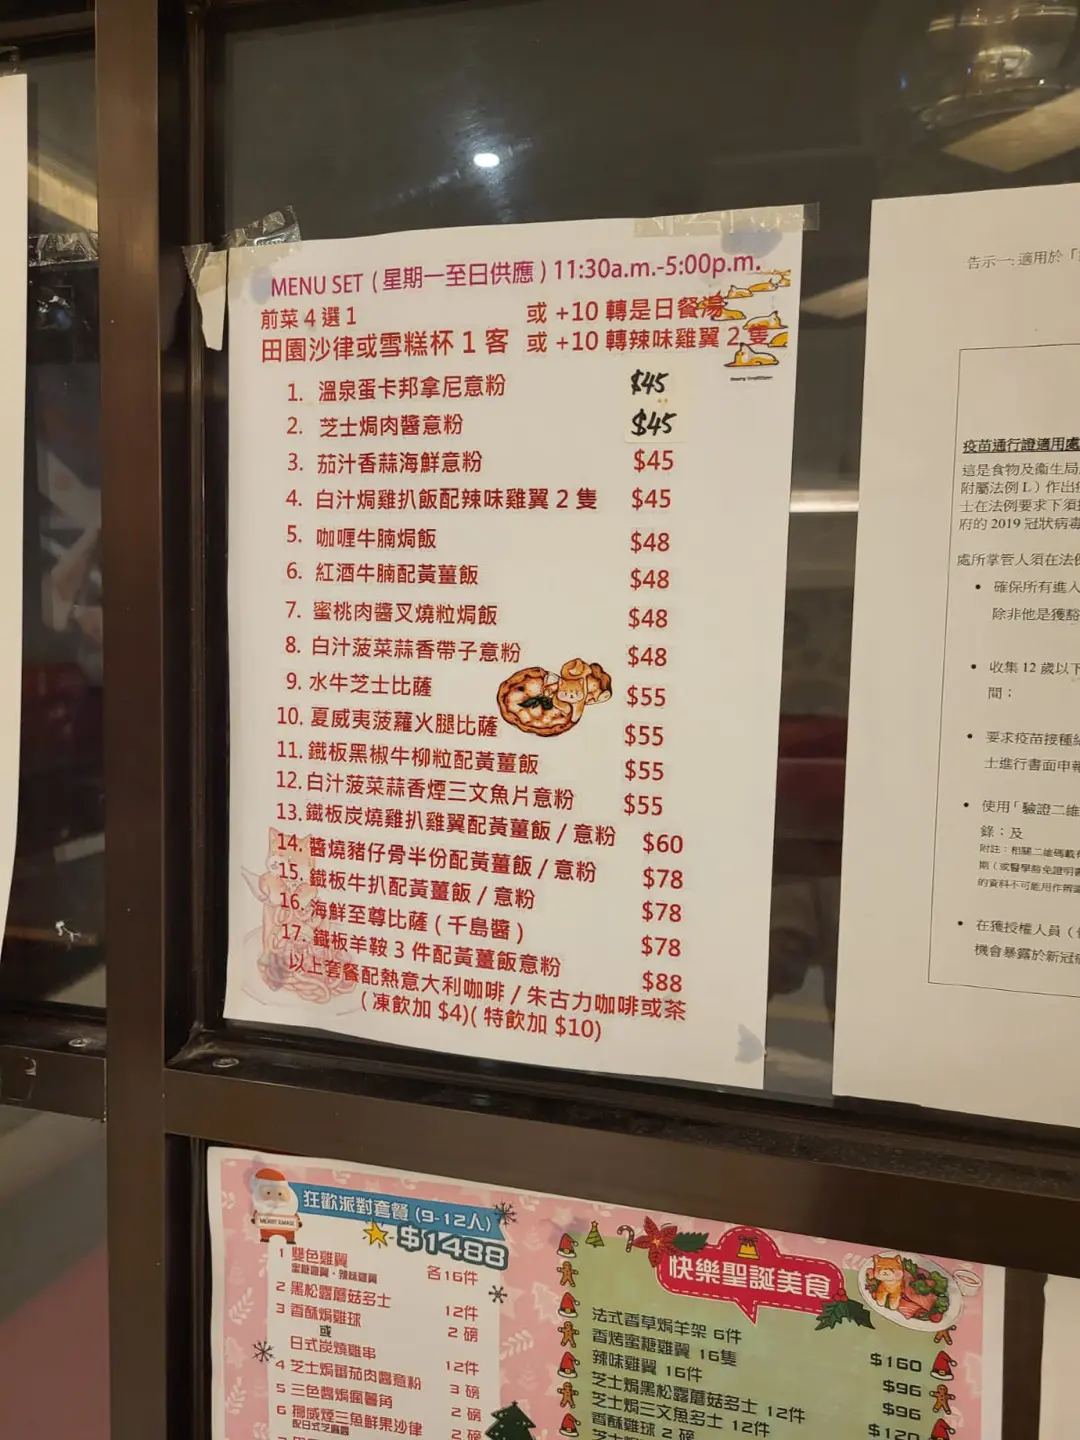 MENU SET ( 星期一至日供應 ) 11:30a.m.-5:00p.m.
前菜 4 選 1 或 +10 轉是日餐湯
田園沙律或雪糕杯 1 客 或 +10 轉辣味雞翼 2 隻
1. 溫泉蛋卡邦拿尼意粉 $45
2. 芝士焗肉醬意粉 $45
3. 茄汁香蒜海鮮意粉 $45
4. 白汁焗雞扒飯配辣味雞翼 2 隻 $45
5. 咖喱牛腩焗飯 $48
6. 紅酒牛腩配黃薑飯 $48
7. 蜜桃肉醬叉燒粒焗飯 $48
8. 白汁菠菜蒜香帶子意粉 $48
9. 水牛芝士比薩 $55
10. 夏威夷菠蘿火腿比薩 $55
11. 鐵板黑椒牛柳粒配黃薑飯 $55
12. 白汁菠菜蒜香煙三文魚片意粉 $55
13. 鐵板炭燒雞扒雞翼配黃薑飯 / 意粉 $60
14. 醬燒豬仔骨半份配黃薑飯 / 意粉 $78
15. 鐵板牛扒配黃薑飯 / 意粉 $78
16. 海鮮至尊比薩 ( 千島醬 ) $78
17. 鐵板羊鞍 3 件配黃薑飯意粉 $88
以上套餐配熱意大利咖啡 / 朱古力咖啡或茶
( 凍飲加 $4)( 特飲加 $10)
告示一: 適用於「
疫苗通行證適用處
這是食物及衞生局
附屬法例 L）作出
士在法例要求下須
府的 2019 冠狀病毒
處所掌管人須在法
• 確保所有進入
除非他是獲豁
• 收集 12 歲以下
間；
• 要求疫苗接種
士進行書面申報
• 使用「驗證二維
錄；及
附註：相關二維碼載
期（或醫學豁免證明書
的資料不可能用作辨
• 在獲授權人員（
機會暴露於新冠
狂歡派對套餐 (9-12人)
$1488
MERRY XMAS
1 雙色雞翼 各16件
蜜糖雞翼、辣味雞翼
2 黑松露蘑菇多士 12件
3 香酥焗雞球 2 磅
或
日式炭燒雞串 12件
4 芝士焗蕃茄肉醬意粉 3 磅
5 三色醬焗瘋薯角 2 磅
6 挪威煙三魚鮮果沙律 2 磅
配日式芝麻醬
快樂聖誕美食
法式香草焗羊架 6件 $160
香烤蜜糖雞翼 16隻 $96
辣味雞翼 16件 $96
芝士焗黑松露蘑菇多士 12件 $120
芝士焗三文魚多士 12件
香酥雞球 2 磅